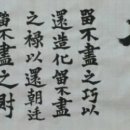 留不盡之巧以
還造化留不盡
之禄以還朝廷
留不盡之財